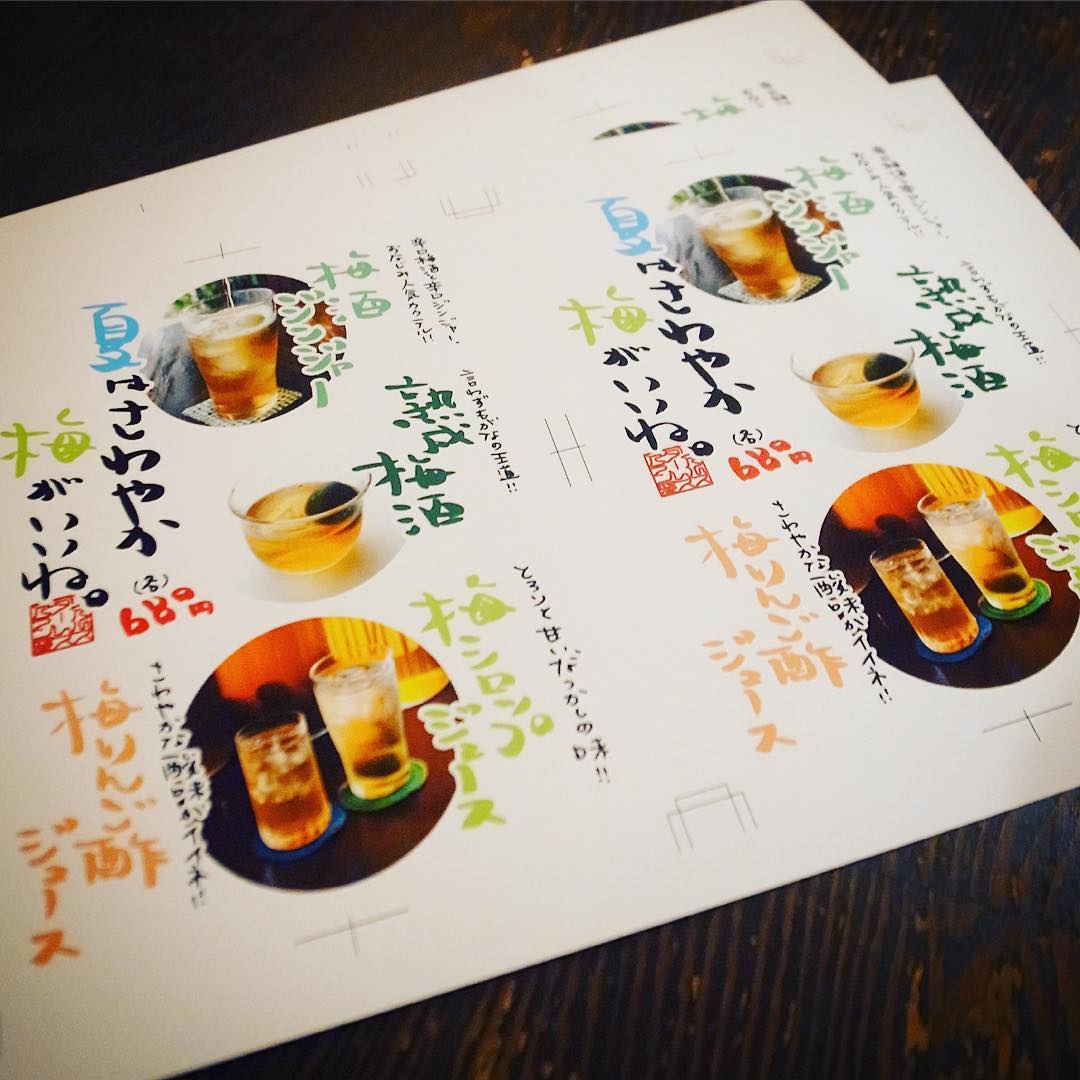 梅酒
ジンジャー
辛口梅酒と辛口ジンジャー、
おなじみ人気カクテル!!
夏はさわやか
梅がいいね。
(各)
680円
熟成梅酒
言わずもがなの王道!!
梅シロップ
ジュース
とろんと甘いなつかしの味!!
梅りんご酢
ジュース
さわやかな酸味がイイネ!!
梅
梅酒
ジンジャー
夏はさわやか
梅がいいね。
(各)
680円
熟成梅酒
言わずもがなの王道!!
梅シロップ
梅りんご酢
ジュース
さわやかな酸味がイイネ!!